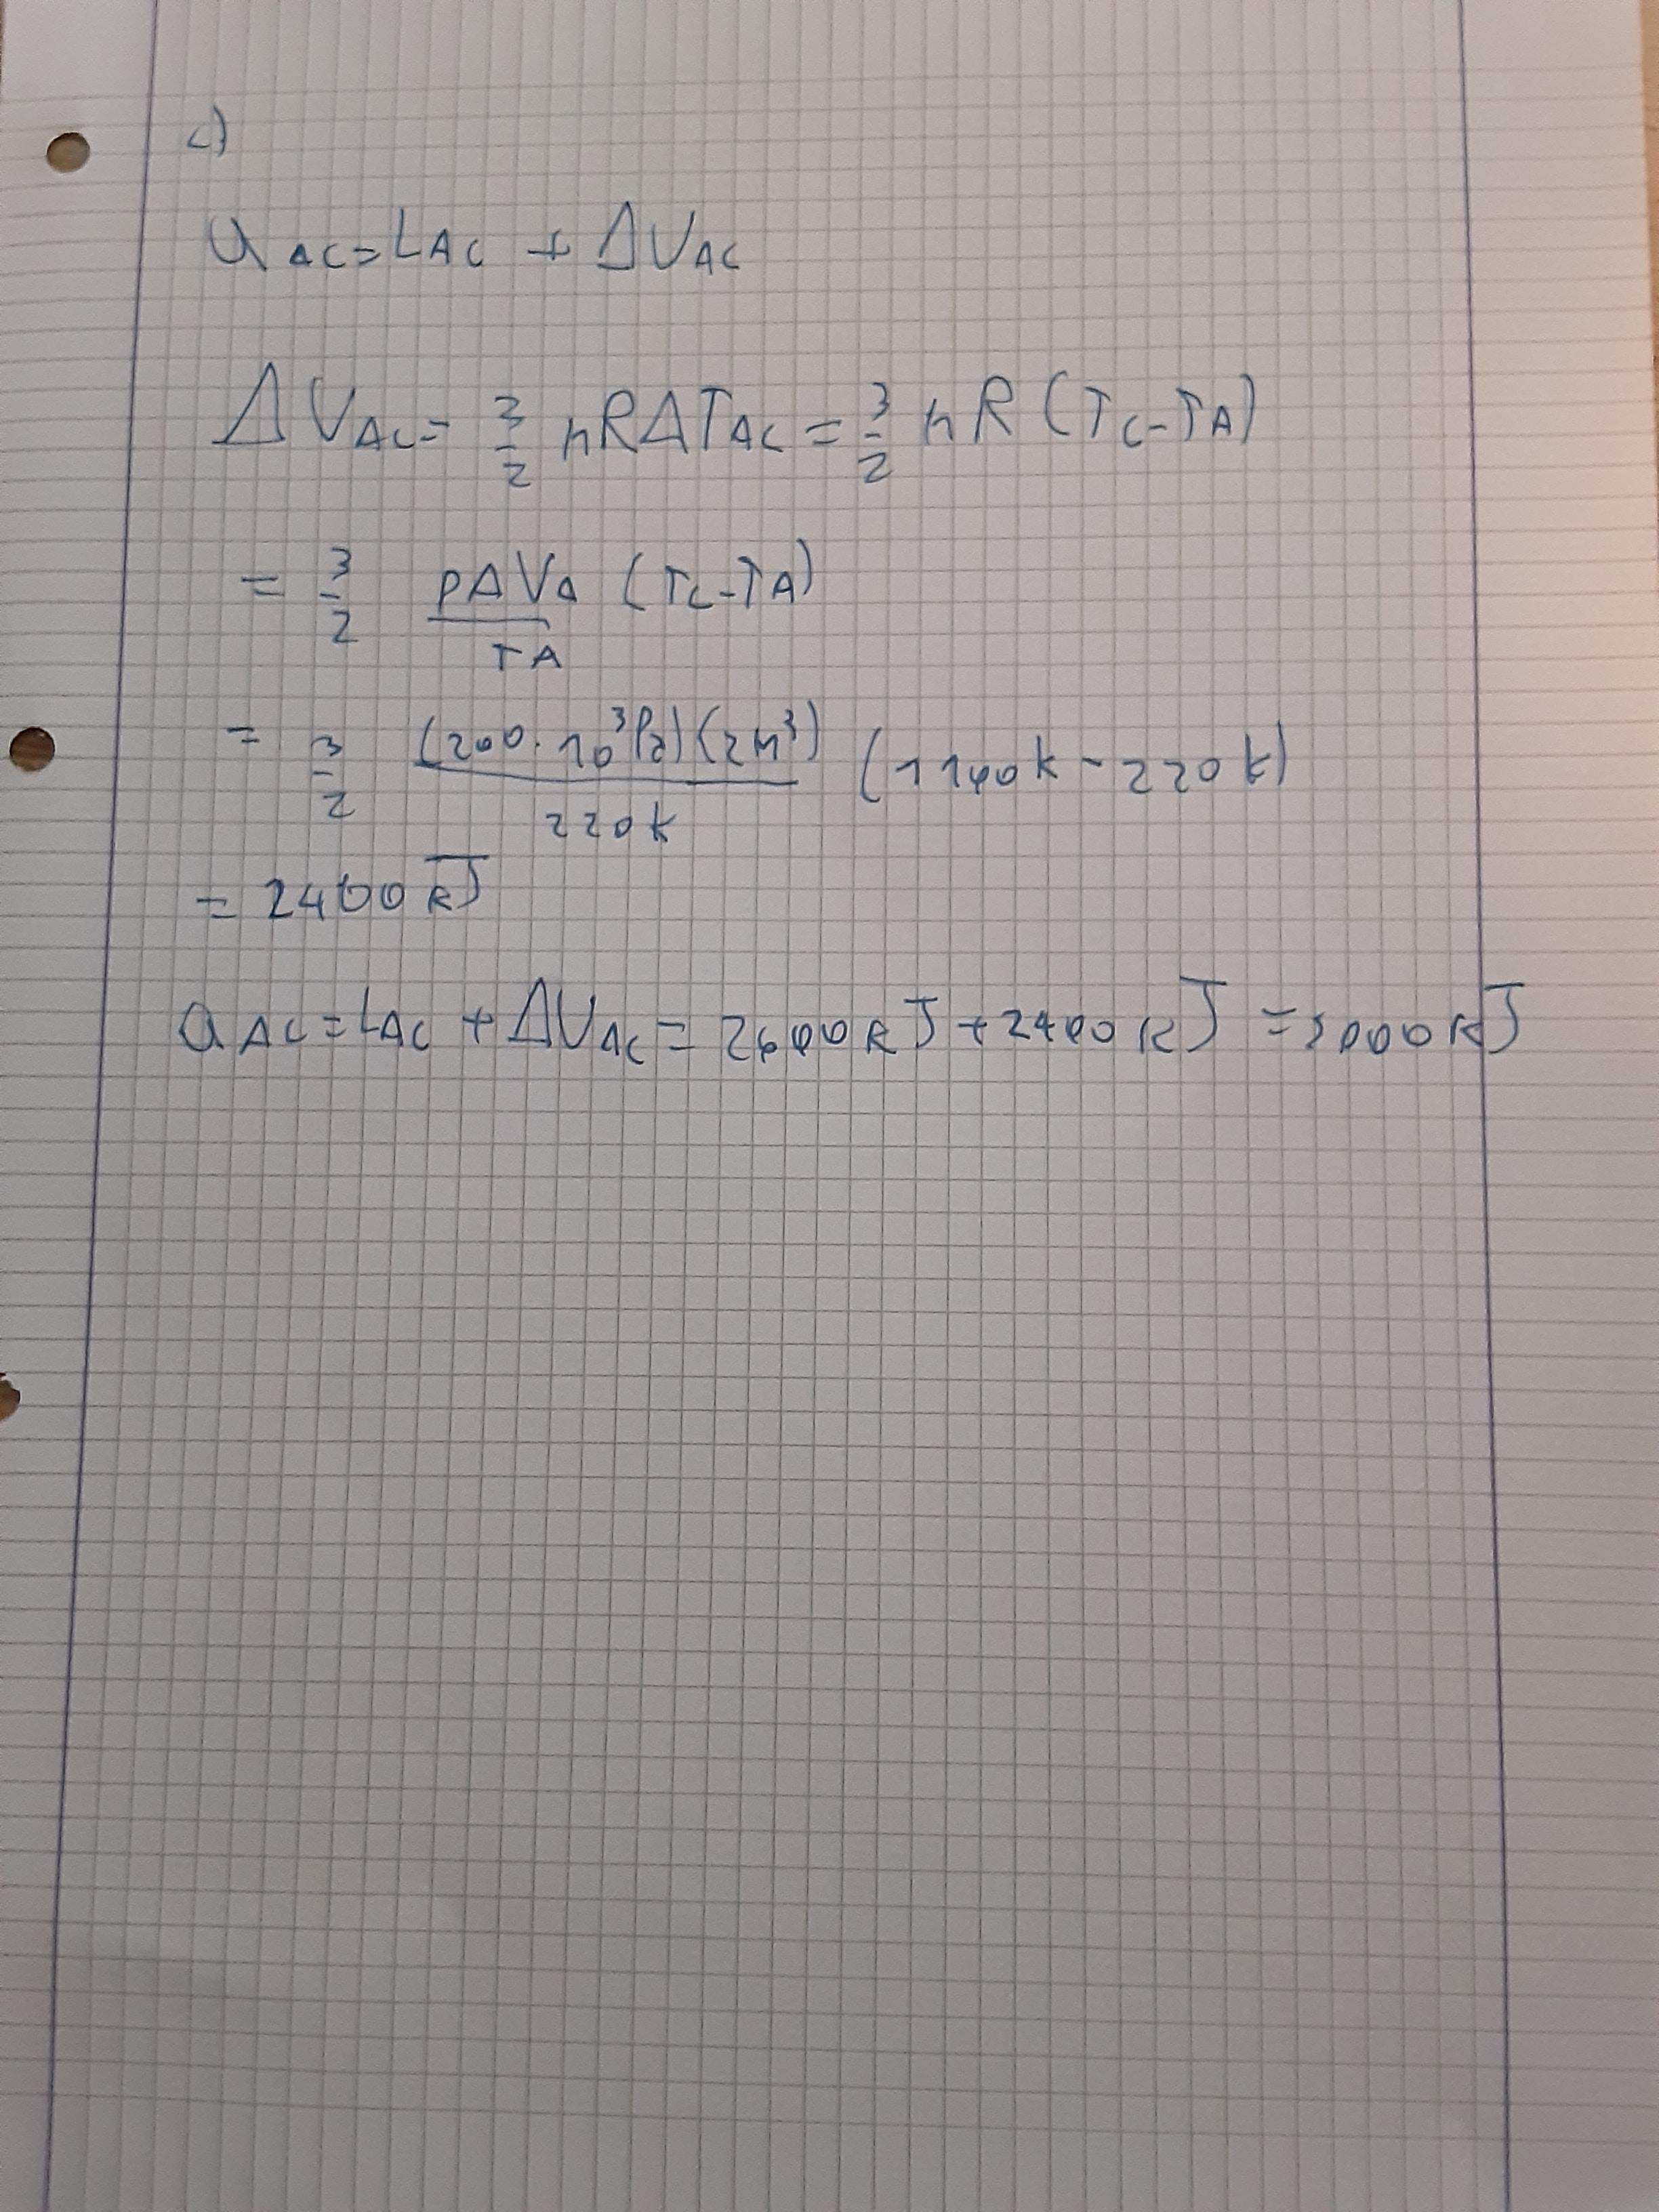 c)
Q AC = LAC + ΔUAC
ΔUAC = 3/2 nRΔTAC = 3/2 nR (TC - TA)
= 3/2 pAVA/TA (TC - TA)
= 3/2 (200 · 10³ Pa)(2m³)/220K (1140K - 220K)
= 2400 KJ
QAC = LAC + ΔUAC = 2600KJ + 2400 KJ = 5000KJ